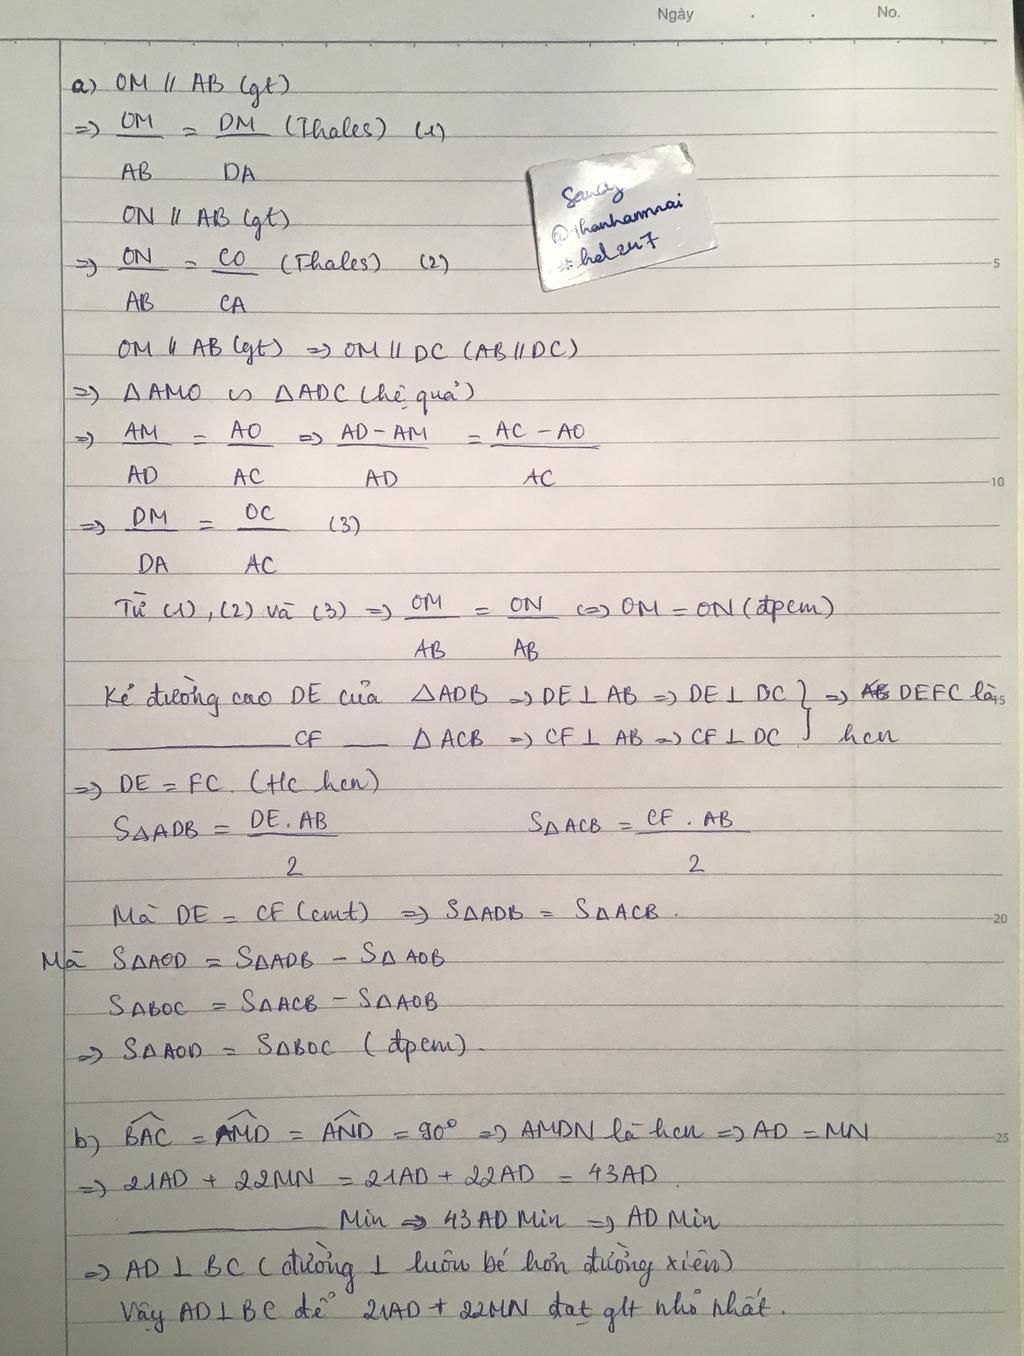 Ngày . . No.
a) OM // AB (gt)
=> OM/AB = DM/DA (Thales) (1)
ON // AB (gt)
=> ON/AB = CO/CA (Thales) (2)
OM // AB (gt) => OM // DC (AB // DC)
=> ΔAMO ∽ ΔADC (hệ quả)
=> AM/AD = AO/AC => AD - AM/AD = AC - AO/AC
=> DM/DA = OC/AC (3)
Từ (1), (2) và (3) => OM/AB = ON/AB <=> OM = ON (đpcm)
Kẻ đường cao DE của ΔADB => DE ⊥ AB => DE ⊥ DC } => DEFC là
CF ΔACB => CF ⊥ AB => CF ⊥ DC } hcn
=> DE = FC. (t/c hcn)
SΔADB = DE . AB/2 SΔACB = CF . AB/2
Mà DE = CF (cmt) => SΔADB = SΔACB.
Mà SΔAOD = SΔADB - SΔAOB
SΔBOC = SΔACB - SΔAOB
=> SΔAOD = SΔBOC (đpcm).
b) BAC = AMD = AND = 90° => AMDN là hcn => AD = MN
=> 21AD + 22MN = 21AD + 22AD = 43AD.
Min => 43AD Min => AD Min
=> AD ⊥ BC (đường ⊥ luôn bé hơn đường xiên)
Vậy AD ⊥ BC để 21AD + 22MN đạt gtt nhỏ nhất.
@thanhamnai
#hd247
5
10
15
20
25